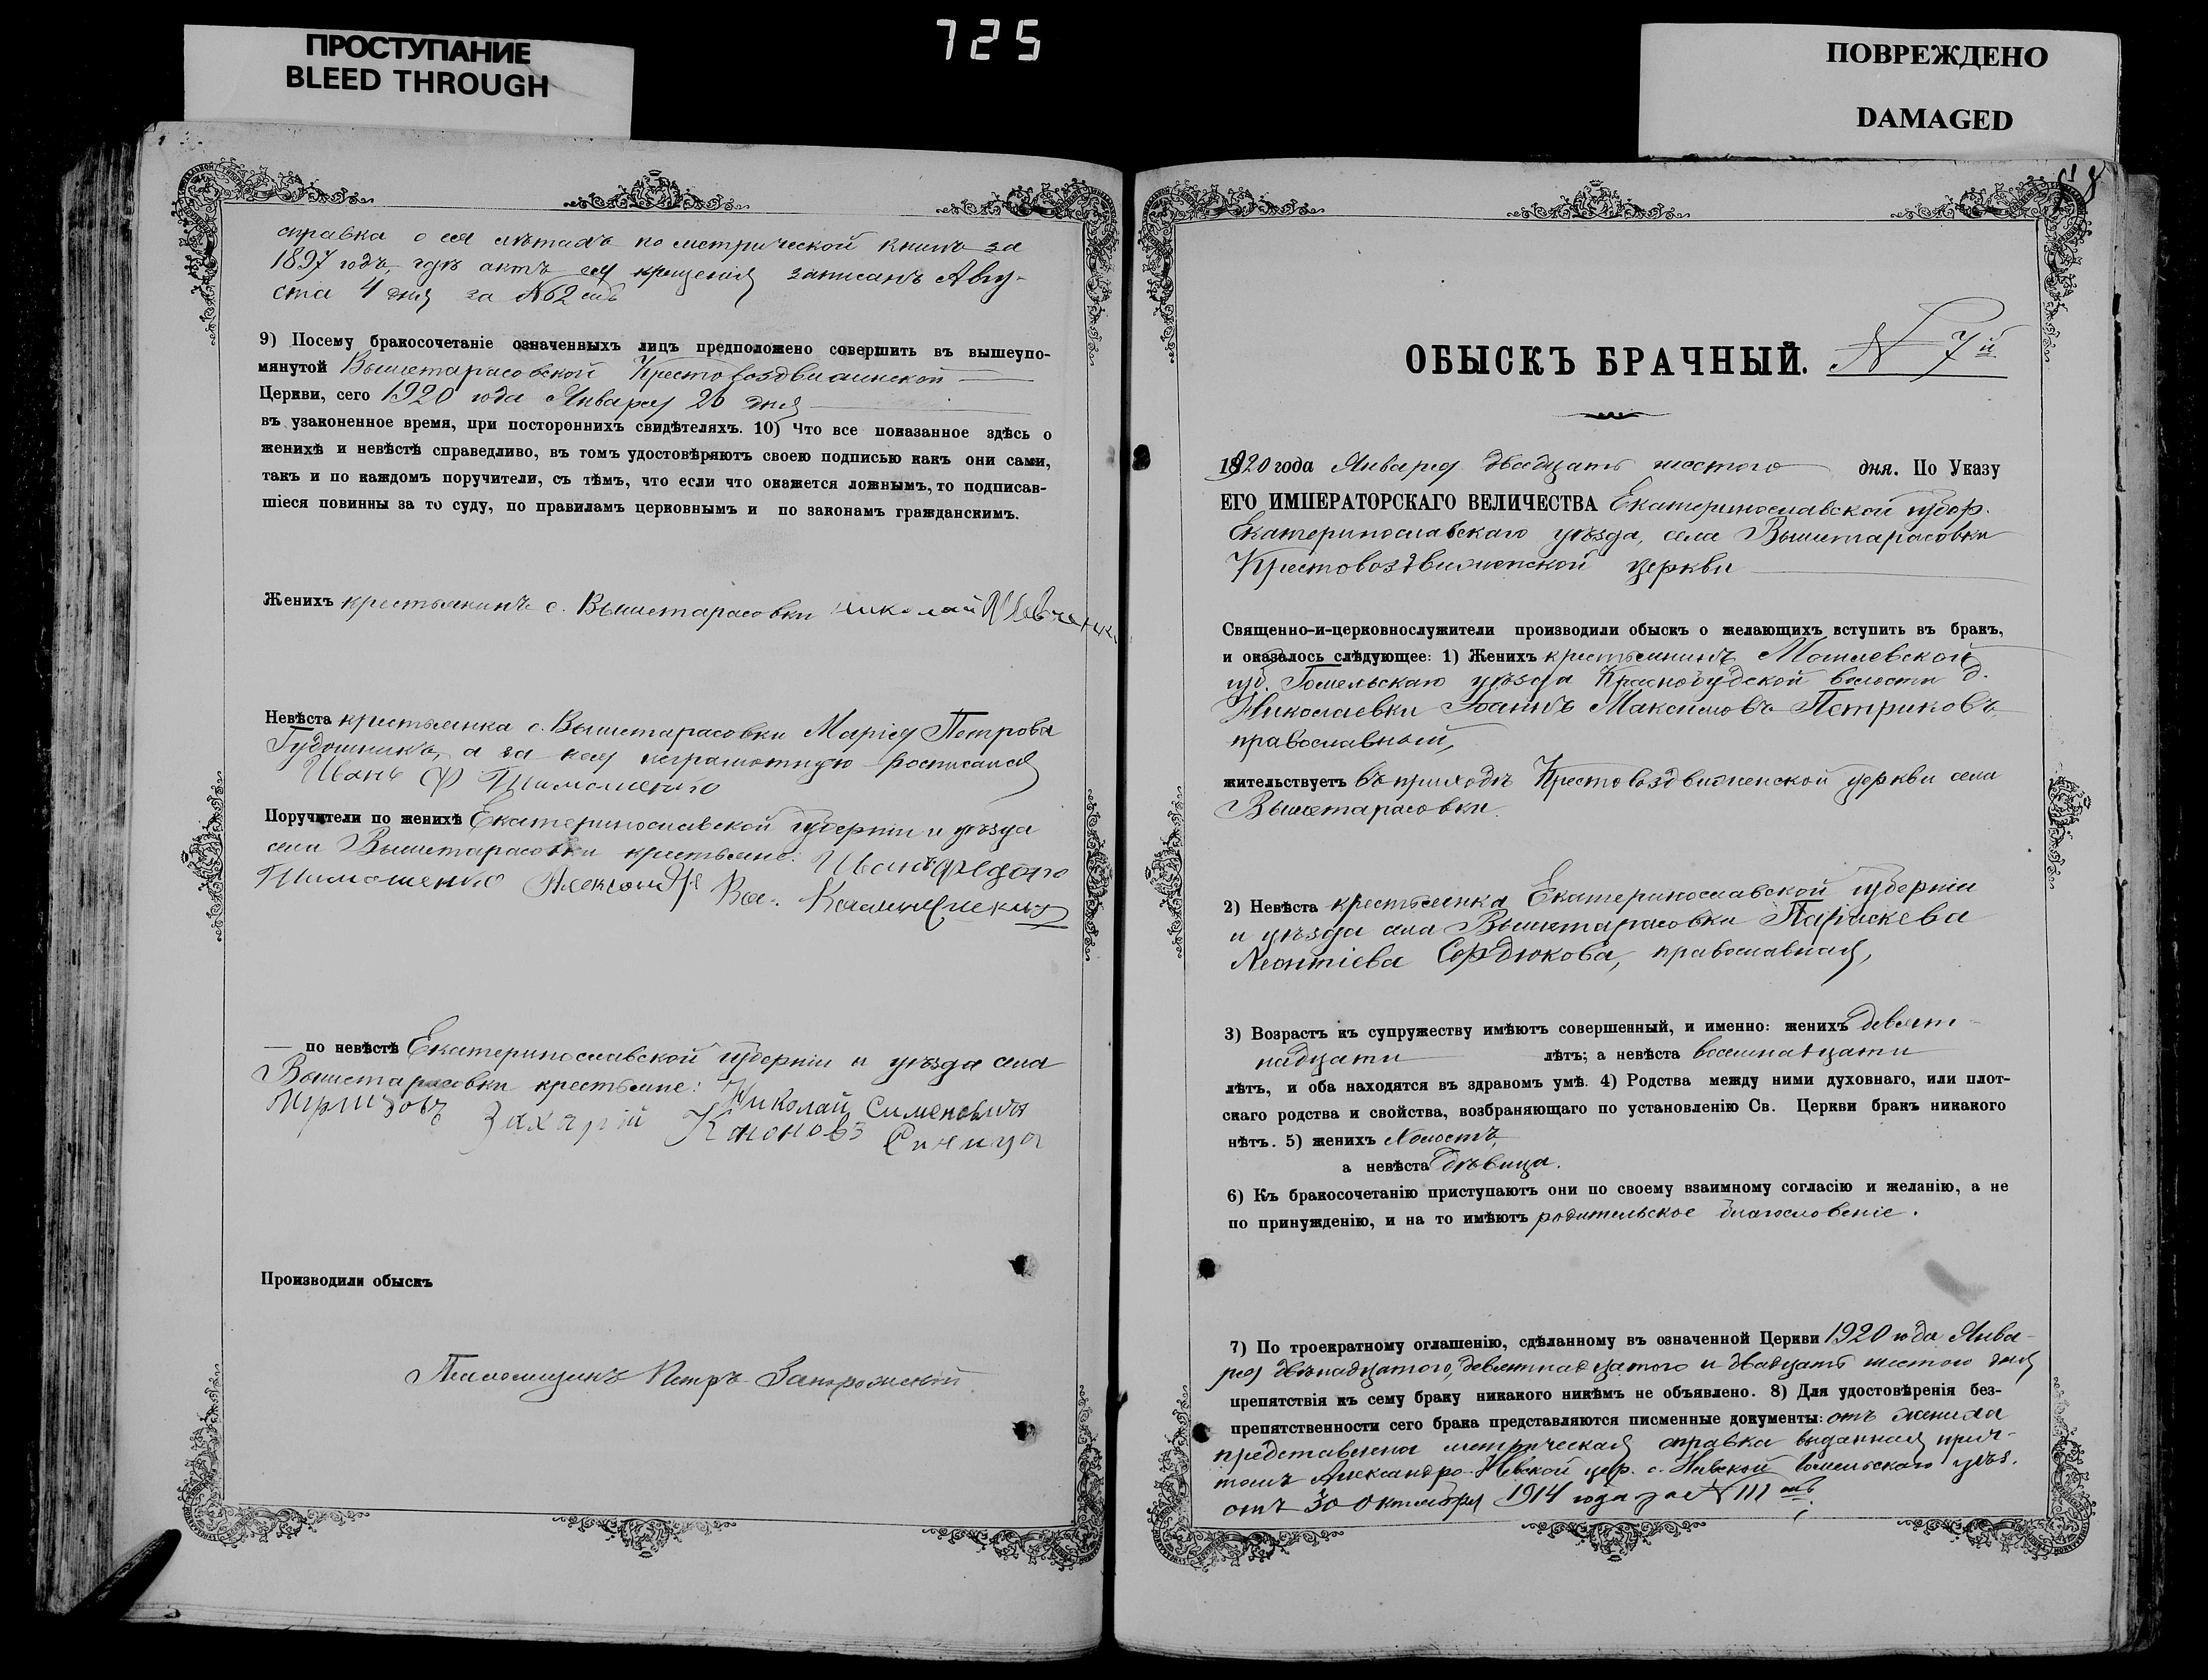 ПРОСТУПАНИЕ
BLEED THROUGH
725
ПОВРЕЖДЕНО
DAMAGED
справка о ея лѣтахъ по метрической книгѣ за
1897 годъ, гдѣ актъ ея крещенія записанъ Авгу-
ста 4 дня за №62
9) Посему бракосочетаніе означенныхъ лицъ предположено совершить въ вышеупо-
мянутой Вышетарасовской Крестовоздвиженской
Церкви, сего 1920 года Января 26 дня
въ узаконенное время, при постороннихъ свидѣтеляхъ. 10) Что все показанное здѣсь о
женихѣ и невѣстѣ справедливо, въ томъ удостовѣряютъ своею подписью какъ они сами,
такъ и по каждомъ поручители, съ тѣмъ, что если что окажется ложнымъ, то подписав-
шіеся повинны за то суду, по правиламъ церковнымъ и по законамъ гражданскимъ.
Женихъ крестьянинъ с. Вышетарасовки николай
Невѣста крестьянка с. Вышетарасовки Марія Петрова
а за нея неграмотную росписался
Иванъ Ф Тимошенко
Поручители по женихѣ Екатеринославской губерніи и уѣзда
села Вышетарасовки крестьяне: Иванъ Федоро
Тимошенко Александр Ва.
по невѣстѣ Екатеринославской губерніи и уѣзда села
Вышетарасовки крестьяне: Николай Сименовичъ
Захарій Кононовъ Синица
Производили обыскъ
Псаломщикъ Петръ Запорожскій
ОБЫСКЪ БРАЧНЫЙ. № 7й
1920 года Января двадцать шестого дня. По Указу
ЕГО ИМПЕРАТОРСКАГО ВЕЛИЧЕСТВА Екатеринославской губер.
Екатеринославскаго уѣзда, села Вышетарасовки
Крестовоздвиженской церкви
Священно-и-церковнослужители производили обыскъ о желающихъ вступить въ бракъ,
и оказалось слѣдующее: 1) Женихъ крестьянинъ Могилевской
губ. Гомельскаго уѣзда Краснобудской волости д.
Николаевки Іоаннъ Максимовъ Петриковъ,
православный,
жительствуетъ въ приходѣ Крестовоздвиженской церкви села
Вышетарасовки.
2) Невѣста крестьянка Екатеринославской губерніи
и уѣзда села Вышетарасовки Параскева
Леонтіева Сердюкова, православная,
3) Возрастъ къ супружеству имѣютъ совершенный, и именно: женихъ девят-
надцати лѣтъ; а невѣста восемнадцати
лѣтъ, и оба находятся въ здравомъ умѣ. 4) Родства между ними духовнаго, или плот-
скаго родства и свойства, возбраняющаго по установленію Св. Церкви бракъ никакого
нѣтъ. 5) женихъ холостъ,
а невѣста дѣвица.
6) Къ бракосочетанію приступаютъ они по своему взаимному согласію и желанію, а не
по принужденію, и на то имѣютъ родительское благословеніе.
7) По троекратному оглашенію, сдѣланному въ означенной Церкви 1920 года Янва-
ря двѣнадцатого, девятнадцатого и двадцать шестого дня
препятствія къ сему браку никакого никѣмъ не объявлено. 8) Для удостовѣренія без-
препятственности сего брака представляются писменные документы: отъ жениха
представлена метрическая справка выданная прич-
томъ Александро-Невской цер. с. Невской Гомельскаго уѣз.
отъ 30 Октября 1914 года за № 111